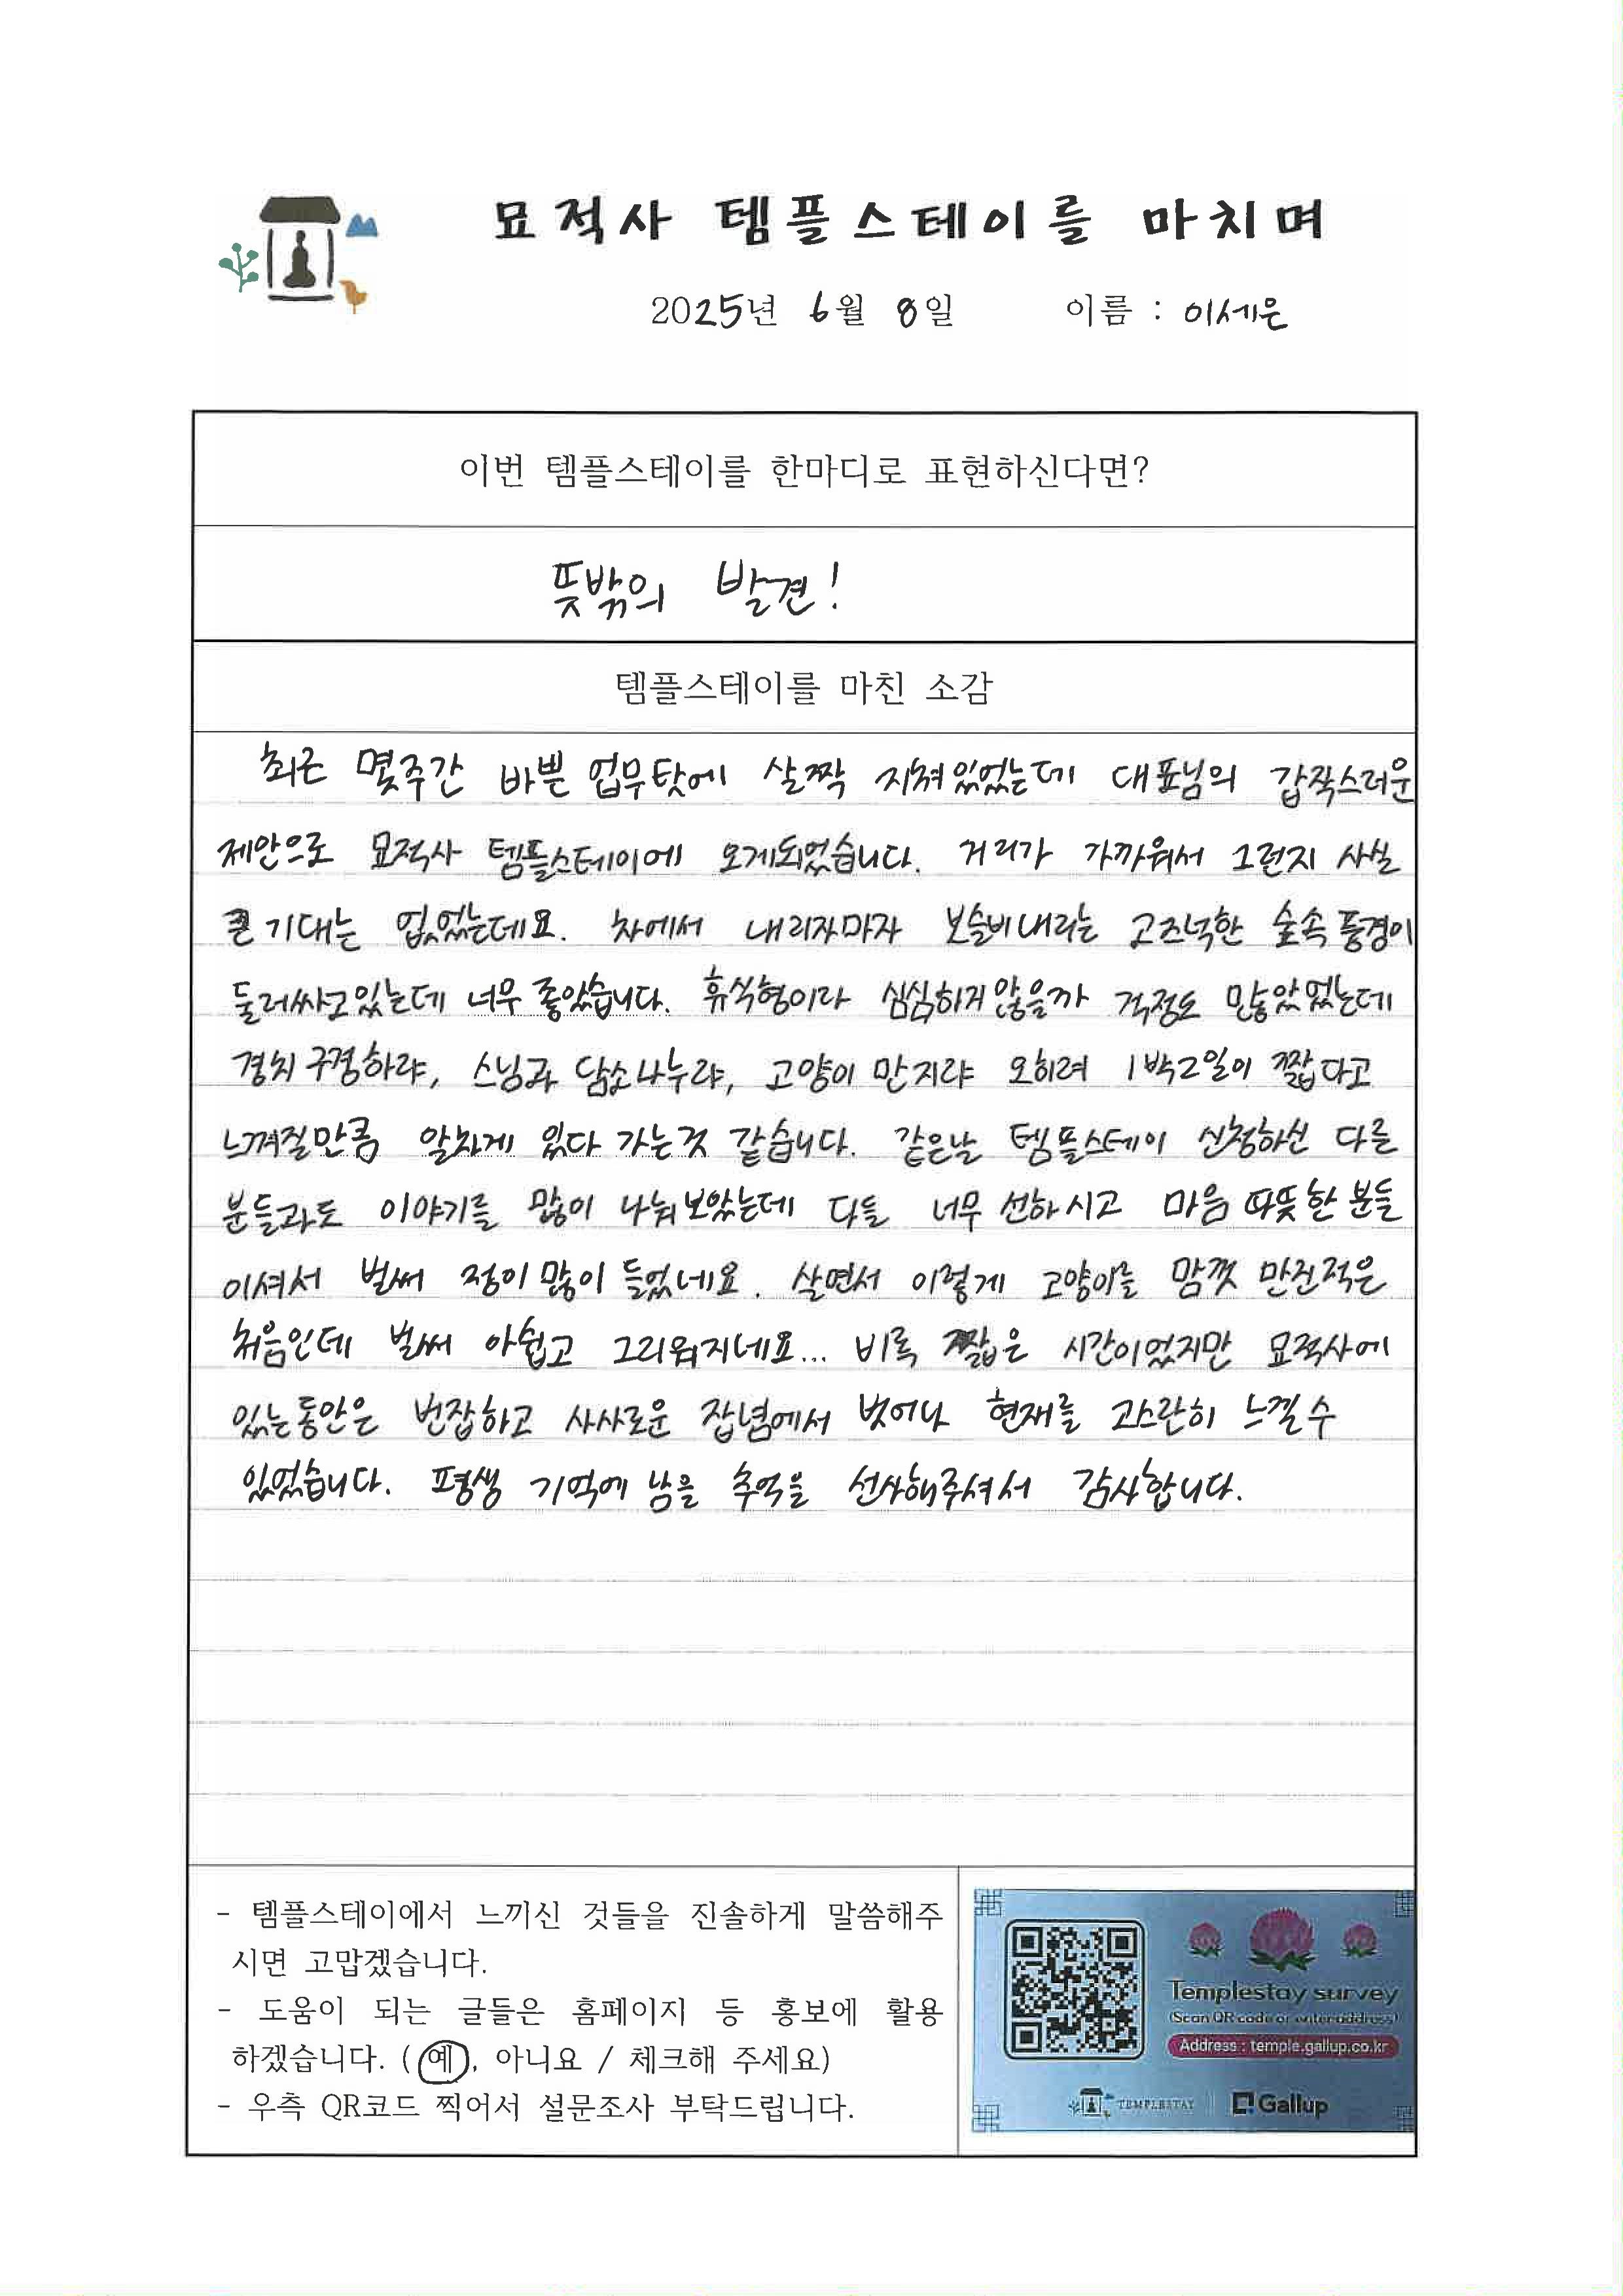 묘적사 템플스테이를 마치며
2025년 6월 8일 이름 : 이세은
이번 템플스테이를 한마디로 표현하신다면?
뜻밖의 발견!
템플스테이를 마친 소감
최근 몇주간 바쁜 업무탓에 살짝 지쳐있었는데 대표님의 갑작스러운
제안으로 묘적사 템플스테이에 오게되었습니다. 거리가 가까워서 그런지 사실
큰 기대는 없었는데요. 차에서 내리자마자 보슬비내리는 고즈넉한 숲속 풍경이
둘러싸고있는데 너무 좋았습니다. 휴식형이라 심심하지않을까 걱정도 많았었는데
경치 구경하랴, 스님과 담소나누랴, 고양이 만지랴 오히려 1박2일이 짧다고
느껴질만큼 알차게 있다 가는것 같습니다. 같은날 템플스테이 신청하신 다른
분들과도 이야기를 많이 나눠보았는데 다들 너무 선하시고 마음 따뜻한 분들
이셔서 벌써 정이 많이 들었네요. 살면서 이렇게 고양이를 맘껏 만진적은
처음인데 벌써 아쉽고 그리워지네요... 비록 짧은 시간이었지만 묘적사에
있는동안은 번잡하고 사사로운 잡념에서 벗어나 현재를 고스란히 느낄수
있었습니다. 평생 기억에 남을 추억을 선사해주셔서 감사합니다.
- 템플스테이에서 느끼신 것들을 진솔하게 말씀해주
시면 고맙겠습니다.
- 도움이 되는 글들은 홈페이지 등 홍보에 활용
하겠습니다. (예, 아니요 / 체크해 주세요)
- 우측 QR코드 찍어서 설문조사 부탁드립니다.
Templestay survey
(Scan QR code or enter address)
Address : temple.gallup.co.kr
TEMPLESTAY Gallup